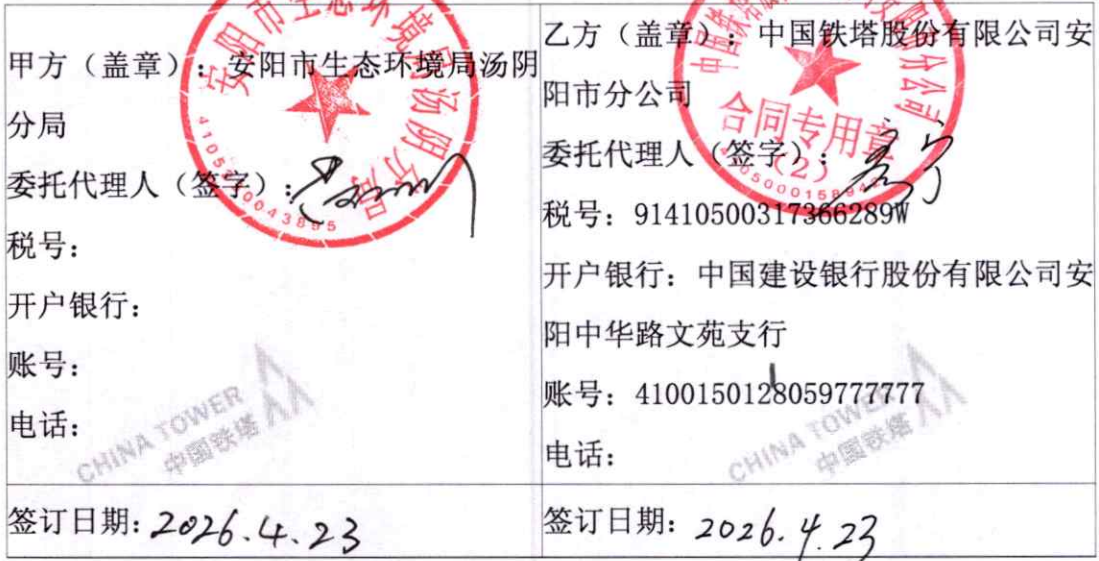 甲方（盖章）：安阳市生态环境局汤阴
分局
委托代理人（签字）：
税号：
开户银行：
账号：
电话：
签订日期：2026.4.23
乙方（盖章）：中国铁塔股份有限公司安
阳市分公司
委托代理人（签字）：
税号：91410500317366289W
开户银行：中国建设银行股份有限公司安
阳中华路文苑支行
账号：41001501280597777777
电话：
签订日期：2026.4.23
安阳市生态环境局汤阴分局
合同专用章
（2）
CHINA TOWER
中国铁塔
CHINA TOWER
中国铁塔